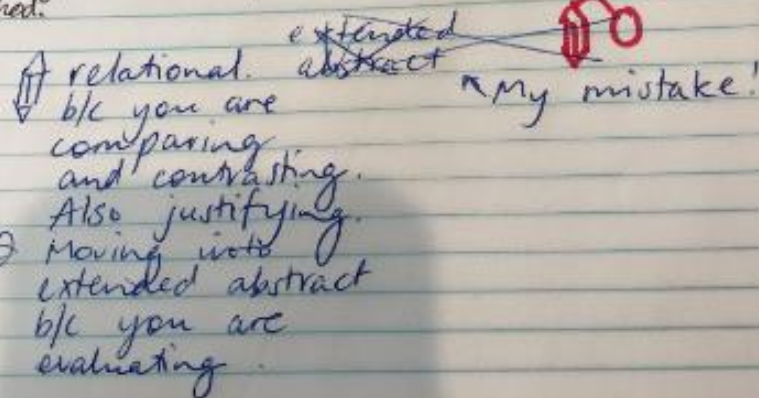 extended
abstract
relational.
b/c you are
comparing
and contrasting.
Also justifying.
Moving into
extended abstract
b/c you are
evaluating.
My mistake!